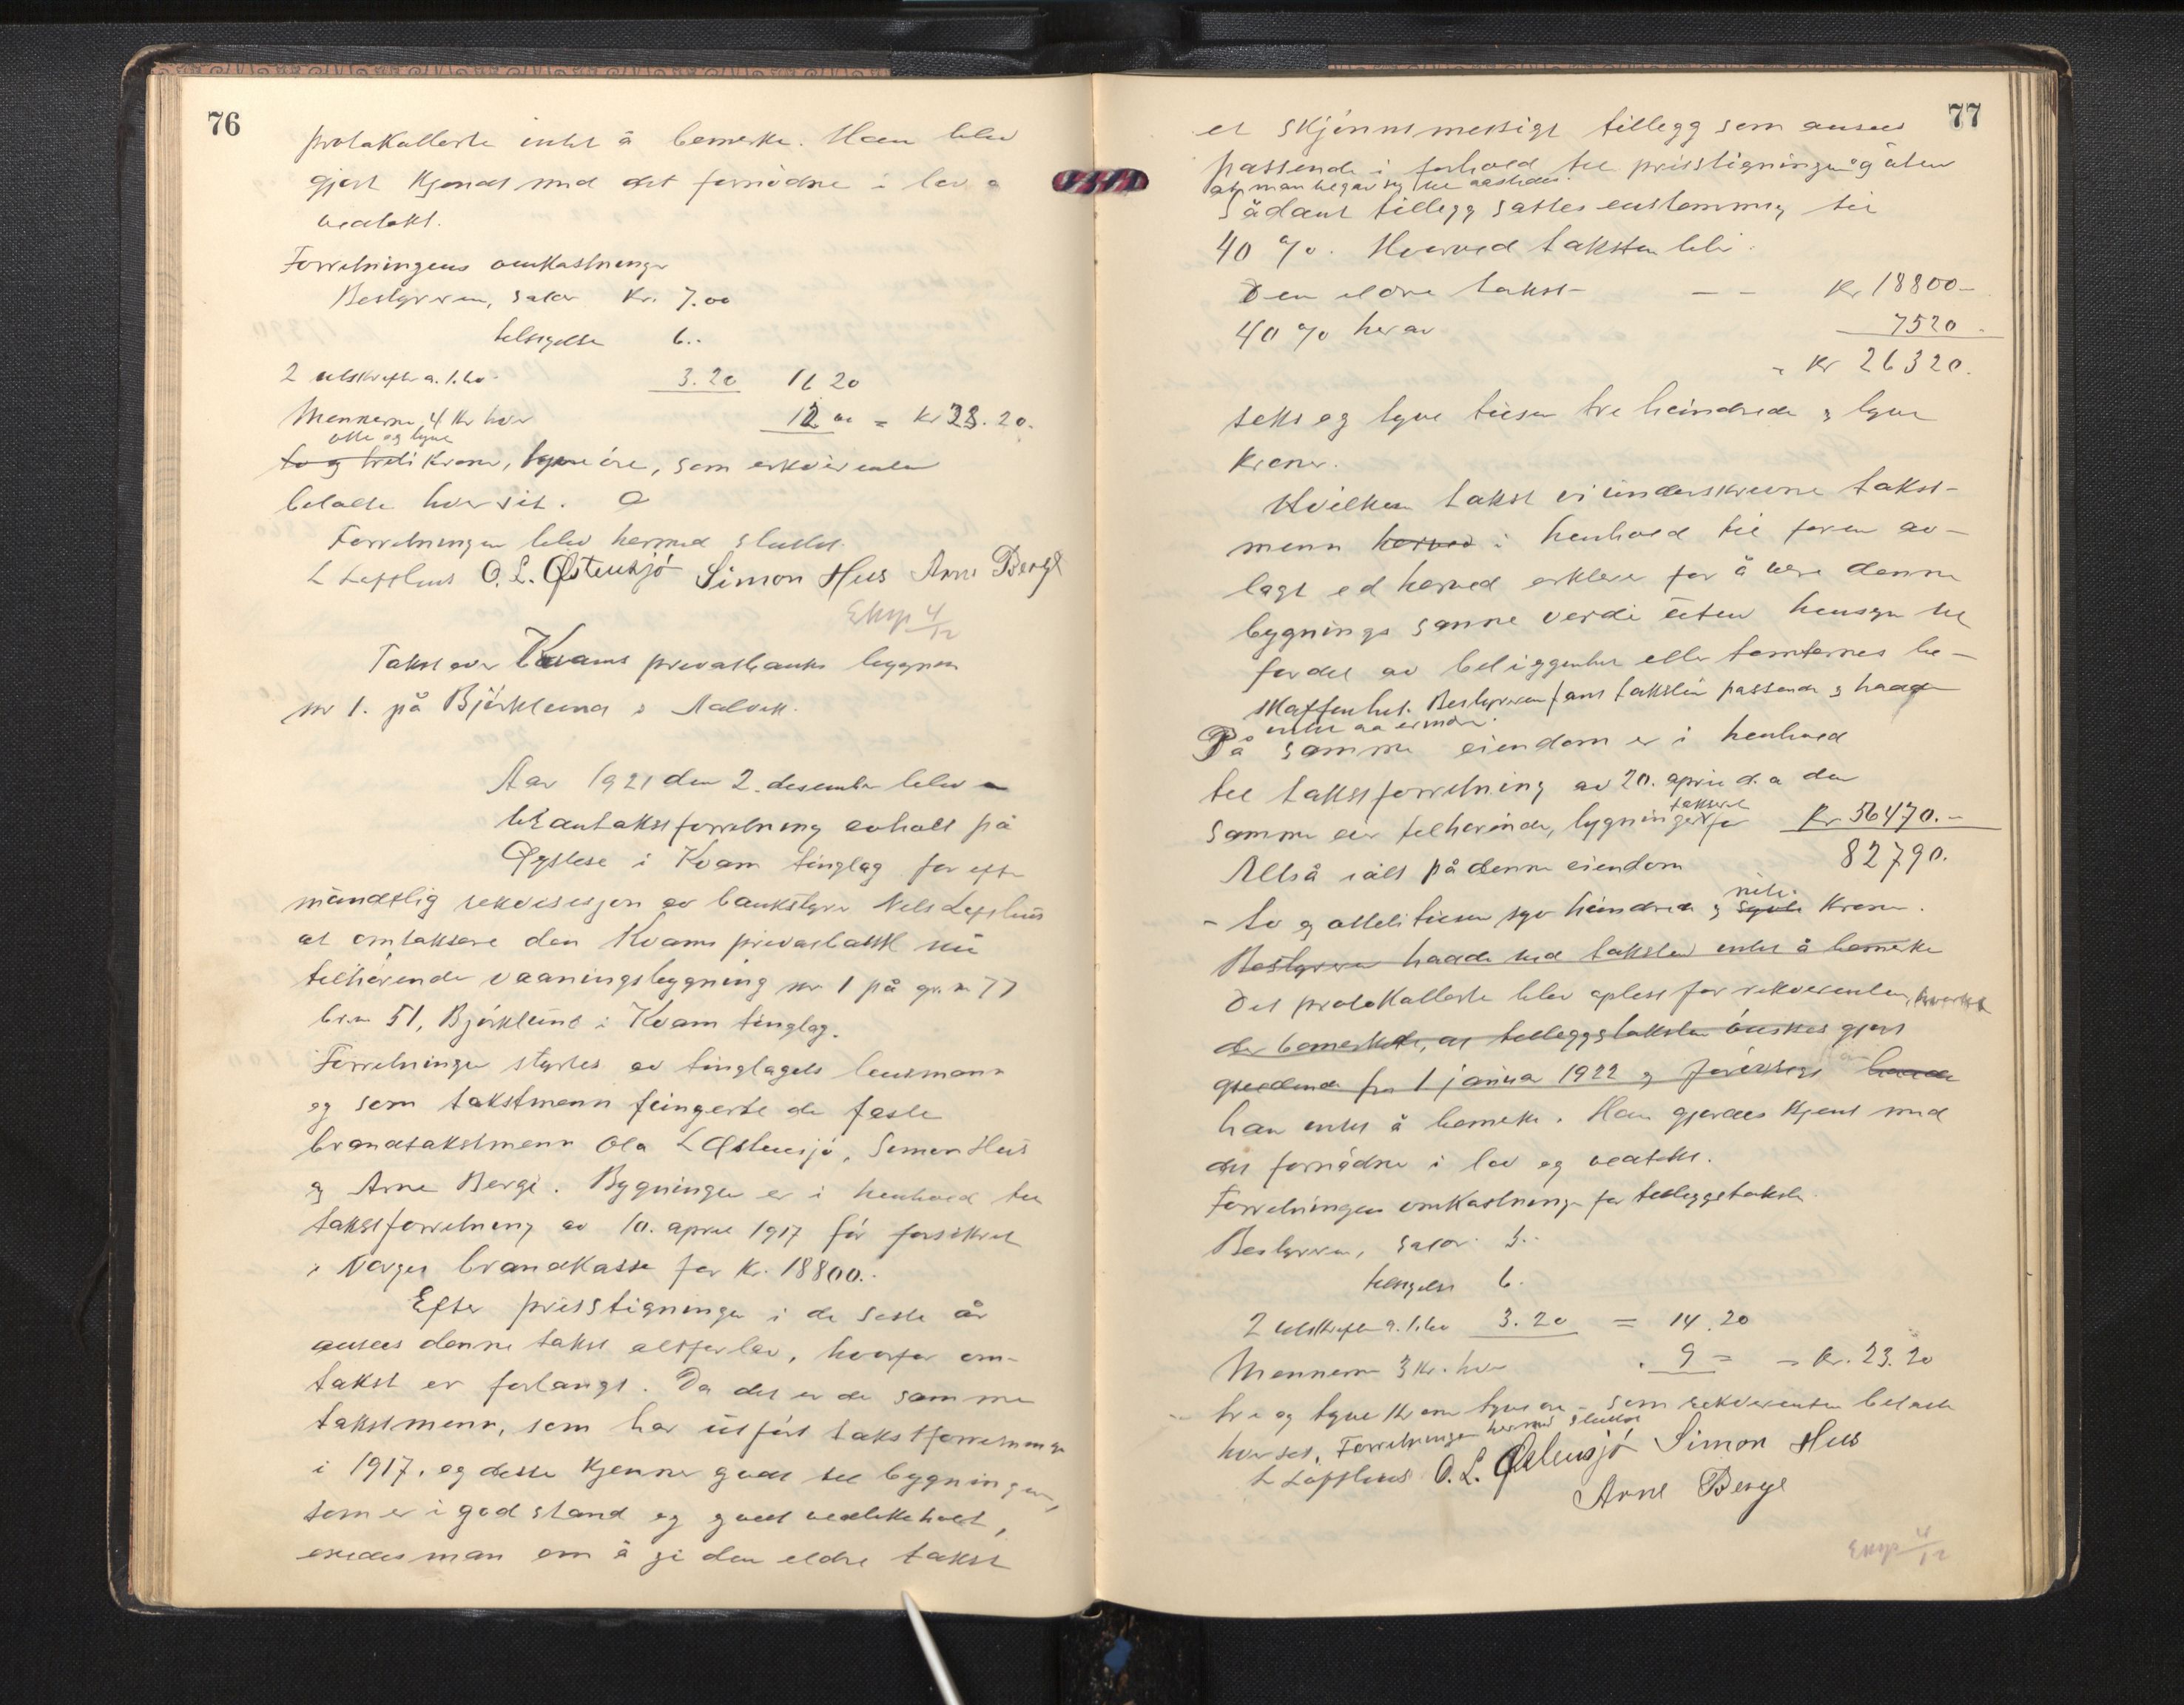 76
protokollerte intet å bemerke. Han blev
gjort kjendt med det fornödne i lov o
vedtekt.
Forretningens omkostninger
Bestyreren, salær Kr. 7.00
tilsigelse 6..
2 utskrifter a. 1.60 3.20 16 20
Mennerne, 4 Kr hver 12 00 = Kr 28.20.
otte og tyve
to og treti Kroner, tyve öre, som rekvirenten
betalte hver sit.
Forretningen blev hermed sluttet.
L Lofthus O. L. Östensjö Simon Hus Arne Berge
Eksp 4/12
Takst over Kvams privatbanks bygning
nr 1. på Björklund i Aalvik.
Aar 1921 den 2. desember blev
brantakstforretning avholt på
Öystese i Kvam tinglag for efter
mundtlig rekvisisjon av banksty​rer Nils Lofthus
at omtaksere den Kvams privatbank nu
tilhörende vaaningsbygning nr 1 på gr. n 77
br.n 51, Björklund i Kvam tinglag.
Forretningen styrtes av tinglagets lensmann
og som takstmenn fungerte de faste
brandtakstmenn Ola L Östensjö, Simon Hus
og Arne Berge. Bygningen er i henhold til
takstforretning av 10. april 1917 för forsikret
i Norges brandkasse for Kr. 18800..
Efter prisstigningen i de siste år
ansees denne takst altfor lav, hvorfor om-
takst er forlangt. Da det er de samme
takstmenn, som har utfört takstforretningen
i 1917, og disse kjenner godt til bygningen,
som er i god stand og godt vedlikeholt,
enedes man om å gi den eldre takst
77
et skjönnsmessigt tillegg som ansees
passende i forhold til prisstigningen og uten
at man begav sig til aastedet.
Sådant tillegg sattes enstemmig til
40 %. Hvorved taksten blir:
Den eldre takst - - - Kr 18800-
40 % herav 7520 -
Kr 26320.
seks og tyve tusen tre hundrede og tyve
Kroner.
Hvilken takst vi underskrevne takst-
menn herved i henhold til foran av-
lagt ed herved erklerer for å vere denne
bygnings sanne verdi uten hensyn til
fordel av beliggenhet eller tomternes be-
skaffenhet. Bestyreren fant taksten passende og hadde
intet aa erindre.
På samme eiendom er i henhold
til takstforretning av 20. april d.a den
samme eier tilhörende, bygninger taksert for Kr 56470.-
Altså ialt på denne eiendom 82790.
- to og otteti tusen syv hundrede og niti syvti Kroner.
Bestyreren hadde ved taksten intet å bemerke
Det protokollerte blev oplest for rekvirenten, hvortil
der bemerkede, at tilleggstaksten önskes gjort
gjeldende fra 1 januar 1922 og forövrigt hadde
han intet å bemerke. Han gjordes kjent med
det fornödne i lov og vedtekt.
Forretningens omkostninger for tilleggstaksten
Bestyreren, salær 5..
tilsigelse 6.
2 utskrifter a. 1.60 3.20 = 14.20
Mennerne 3 Kr. hver . 9 = = Kr. 23.20
tre og tyve Kroner tyve öre - som rekvirenten betalte
hver sit. Forretningen hermed sluttet
L Lofthus O. L. Östensjö Simon Hus
Arne Berge
Eksp 4/12